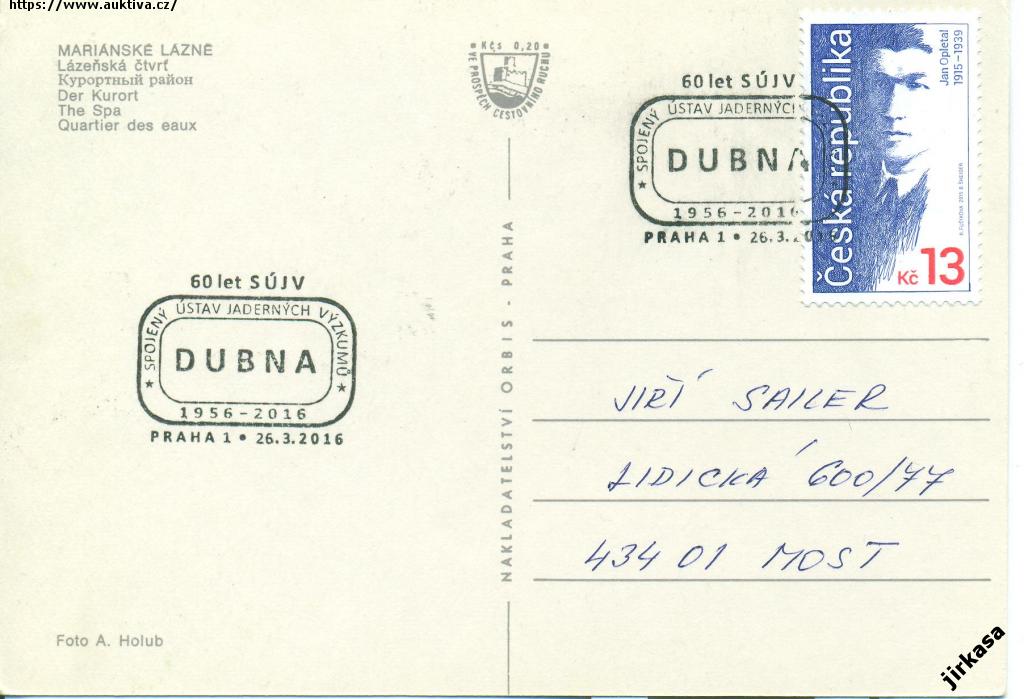 https://www.auktiva.cz/
MARIÁNSKÉ LÁZNĚ
Lázeňská čtvrť
Курортный район
Der Kurort
The Spa
Quartier des eaux
Kčs 0,20
VE PROSPĚCH CESTOVNÍHO RUCHU
60 let SÚJV
SPOJENÝ ÚSTAV JADERNÝCH
DUBNA
1956-2016
PRAHA 1 • 26.3.2016
Česká republika
Jan Opletal
1915-1939
Kč 13
60 let SÚJV
SPOJENÝ ÚSTAV JADERNÝCH VÝZKUMŮ
DUBNA
1956-2016
PRAHA 1 • 26.3.2016
NAKLADATELSTVÍ ORBIS - PRAHA
JIŘÍ SAILER
LIDICKÁ 600/77
434 01 MOST
Foto A. Holub
jirkasa